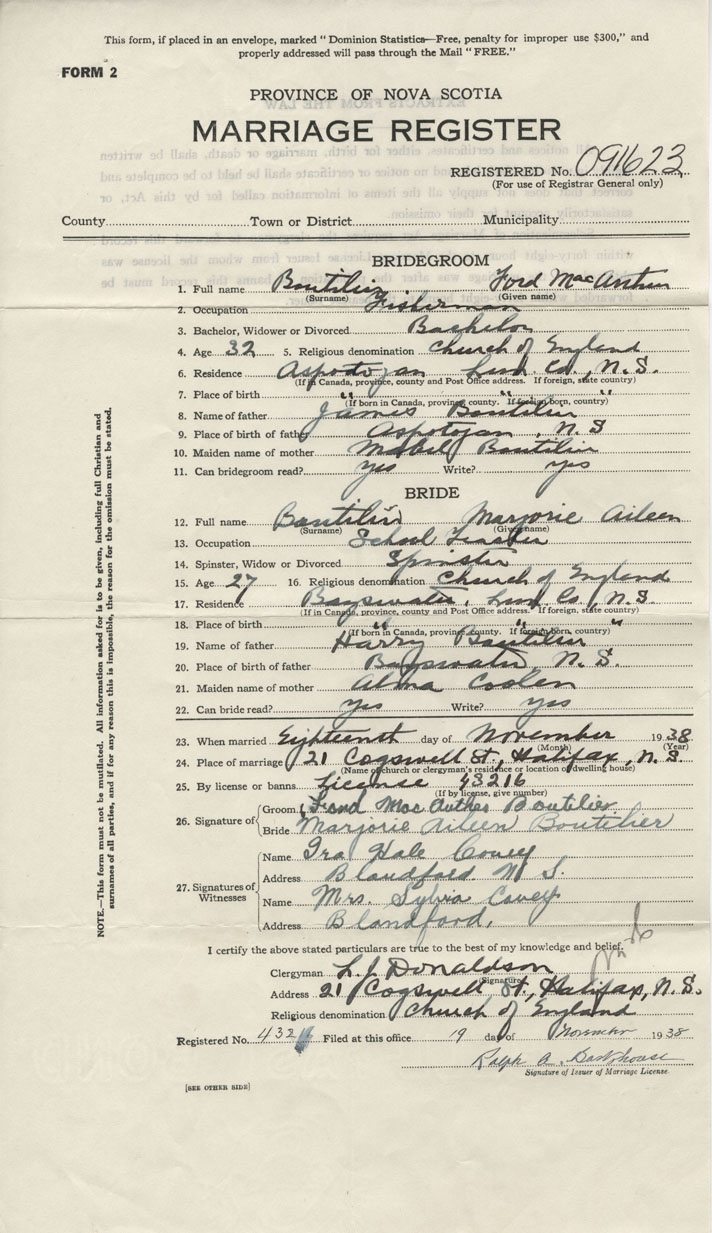 This form, if placed in an envelope, marked "Dominion Statistics—Free, penalty for improper use $300," and
properly addressed will pass through the Mail "FREE."
FORM 2
PROVINCE OF NOVA SCOTIA
MARRIAGE REGISTER
REGISTERED No. 091623
(For use of Registrar General only)
County Town or District Municipality
BRIDEGROOM
1. Full name Boutilier Ford MacArthur
(Surname) (Given name)
2. Occupation Fisherman
3. Bachelor, Widower or Divorced Bachelor
4. Age 32 5. Religious denomination Church of England
6. Residence Aspotogan Lun. Co., N.S.
(If in Canada, province, county and Post Office address. If foreign, state country)
7. Place of birth " " "
(If born in Canada, province, county. If foreign born, country)
8. Name of father James Boutilier
9. Place of birth of father Aspotogan, N.S
10. Maiden name of mother Mabel Boutilier
11. Can bridegroom read? yes Write? yes
BRIDE
12. Full name Boutilier Marjorie Aileen
(Surname) (Given name)
13. Occupation School Teacher
14. Spinster, Widow or Divorced Spinster
15. Age 27 16. Religious denomination Church of England
17. Residence Bayswater, Lun. Co., N.S.
(If in Canada, province, county and Post Office address. If foreign, state country)
18. Place of birth " " "
(If born in Canada, province, county. If foreign born, country)
19. Name of father Harry Boutilier
20. Place of birth of father Bayswater, N.S.
21. Maiden name of mother Alma Coolen
22. Can bride read? yes Write? yes
23. When married Eighteenth day of November 1938
(Month) (Year)
24. Place of marriage 21 Cogswell St., Halifax, N.S
(Name of church or clergyman's residence or location of dwelling house)
25. By license or banns License 43216
(If by license, give number)
26. Signature of Groom Ford MacArther Boutilier
Bride Marjorie Aileen Boutilier
27. Signatures of Witnesses
Name Ira Hale Covey
Address Blandford N S.
Name Mrs. Sylvia Covey
Address Blandford,
I certify the above stated particulars are true to the best of my knowledge and belief.
Clergyman L. J. Donaldson
(Signature)
Address 21 Cogswell St., Halifax, N.S.
Religious denomination Church of England
Registered No. 43216 Filed at this office 19 day of November 1938
Ralph A.
Signature of Issuer of Marriage License.
[SEE OTHER SIDE]
NOTE.—This form must not be mutilated. All information asked for is to be given, including full Christian and
surnames of all parties, and if for any reason this is impossible, the reason for the omission must be stated.